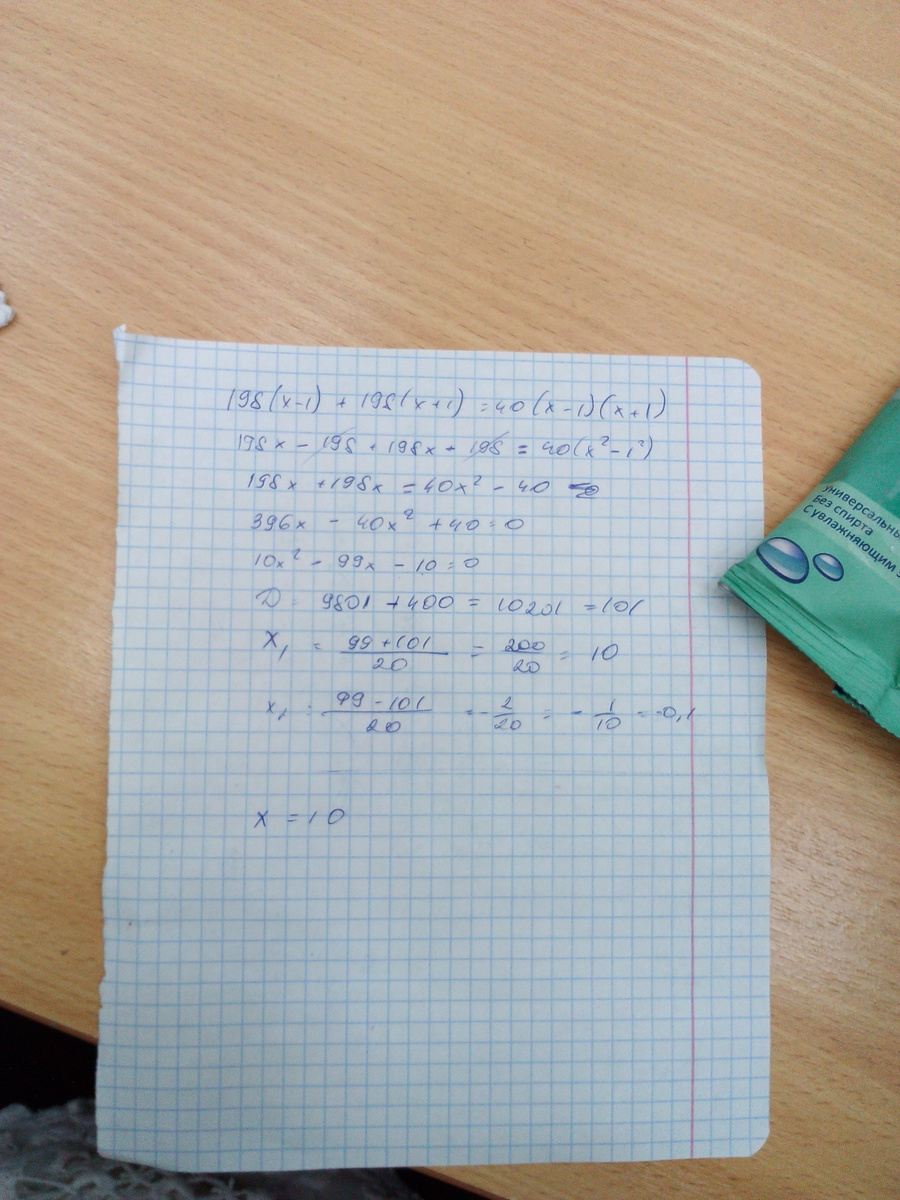 198(x-1) + 198(x+1) = 40(x-1)(x+1)
198x - 198 + 198x + 198 = 40(x² - 1²)
198x + 198x = 40x² - 40
396x - 40x² + 40 = 0
10x² - 99x - 10 = 0
D = 9801 + 400 = 10201 = 101
x₁ = (99 + 101)/20 = 200/20 = 10
x₁ = (99 - 101)/20 = -2/20 = -1/10 = -0,1
x = 10
универсальны
Без спирта
С увлажняющим